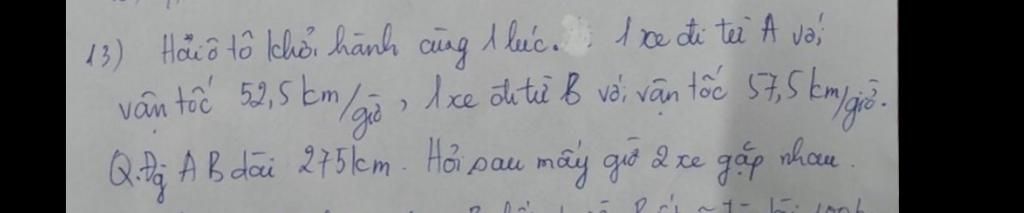 13) Hai ô tô khởi hành cùng 1 lúc. 1 xe đi từ A với
vận tốc 52,5 km/giờ, 1 xe đi từ B với vận tốc 57,5 km/giờ.
Q.Đg A B dài 275km. Hỏi sau mấy giờ 2 xe gặp nhau.